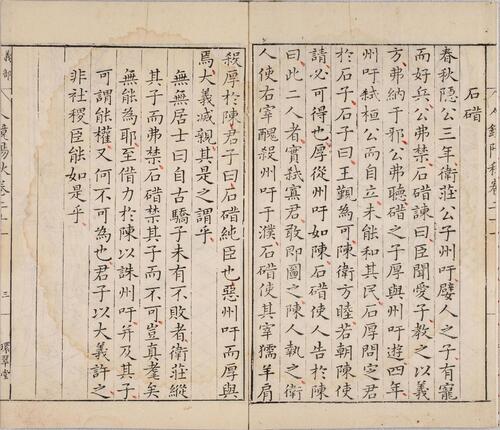 石碏
春秋隱公三年衛莊公子州吁嬖人之子有寵
而好兵公弗禁石碏諫曰臣聞愛子教之以義
方弗納于邪公弗聽碏之子厚與州吁遊四年
州吁弒桓公而自立未能和其民石厚問定君
於石子石子曰王覲為可陳衛方睦若朝陳使
請必可得也厚從州吁如陳石碏使人告於陳
曰此二人者實弒寡君敢即圖之陳人執之衛
人使右宰醜殺州吁于濮石碏使其宰獳羊肩
殺厚於陳君子曰石碏純臣也惡州吁而厚與
焉大義滅親其是之謂乎
無無居士曰自古驕子未有不敗者衛莊縱
其子而弗禁石碏禁其子而不可豈真耄矣
無能為耶至借力於陳以誅州吁并及其子
可謂能權又何不可為也君子以大義許之
非社稷臣能如是乎
義部
三
環翠堂